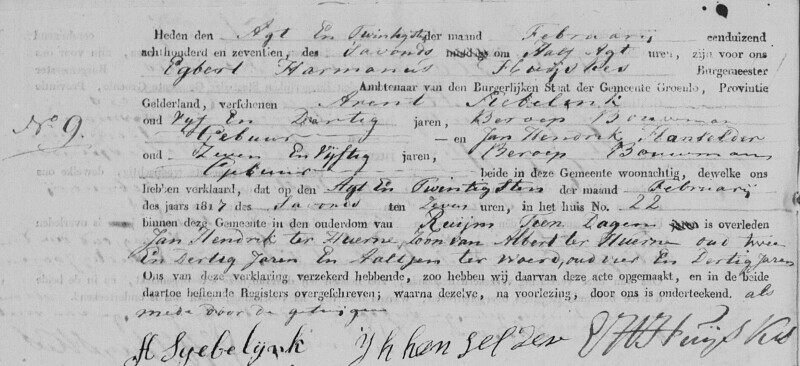 Heden den Agt En Twintigste der maand Februarij eenduizend
achthonderd en zeventien, des Savonds middags om Half Agt uren, zijn voor ons
Egbert Harmanus Burgemeester
Ambtenaar van den Burgerlijken Staat der Gemeente Groenlo, Provintie
Gelderland, verschenen Arent Siebelink
No. 9.
oud Vyf En Dartig jaren, Beroep Bouwman
Gebuur — en Jan Hendrik Hanselder
oud Zeven En Vyftig jaren, Beroep Bouwman
Gebuur beide in deze Gemeente woonachtig, dewelke ons
hebben verklaard, dat op den Agt En Twintigsten der maand Februarij
des jaars 1817 des Savonds ten Zeven uren, in het huis No. 22
binnen deze Gemeente in den ouderdom van Ruijm Tien Dagen jaren is overleden
Jan Hendrik ter Huerne, Zoon van Albert ter Huerne oud twee
En Dertig Jaren En Aaltjen te Woerd, oud vier En Dertig Jaren
Ons van deze verklaring verzekerd hebbende, zoo hebben wij daarvan deze acte opgemaakt, en in de beide
daartoe bestemde Registers overgeschreven; waarna dezelve, na voorlezing, door ons is onderteekend. als
mede door de getuigen
A Syebelynk J h hanselder